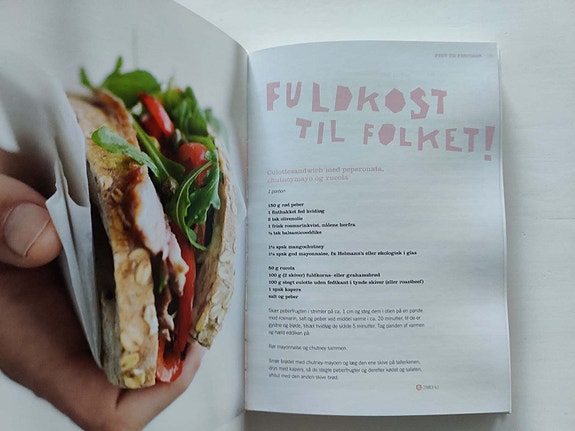 FULDKOST
TIL FOLKET!
Culottesandwich med peperonata,
chutneymayo og rucola
1 person
150 g rød peber
1 finthakket fed hvidløg
2 tsk olivenolie
1 frisk rosmarinkvist, nålene herfra
½ tsk balsamicoeddike
1½ spsk mangochutney
1½ spsk god mayonnaise, fx Heimann's eller økologisk i glas
50 g rucola
100 g (2 skiver) fuldkorns- eller grahamsbrød
100 g stegt culotte uden fedtkant i tynde skiver (eller roastbeef)
1 spsk kapers
salt og peber
Skær peberfrugten i strimler på ca. 1 cm og steg dem i olien på en pande
med rosmarin, salt og peber ved middel varme i ca. 20 minutter, til de er
gyldne og bløde, tilsæt hvidløg de sidste 5 minutter. Tag panden af varmen
og hæld eddiken på.
Rør mayonnaise og chutney sammen.
Smør brødet med chutney-mayoen og læg den ene skive på tallerkenen,
drys med kapers, så de stegte peberfrugter og derefter kødet og salaten,
afslut med den anden skive brød.